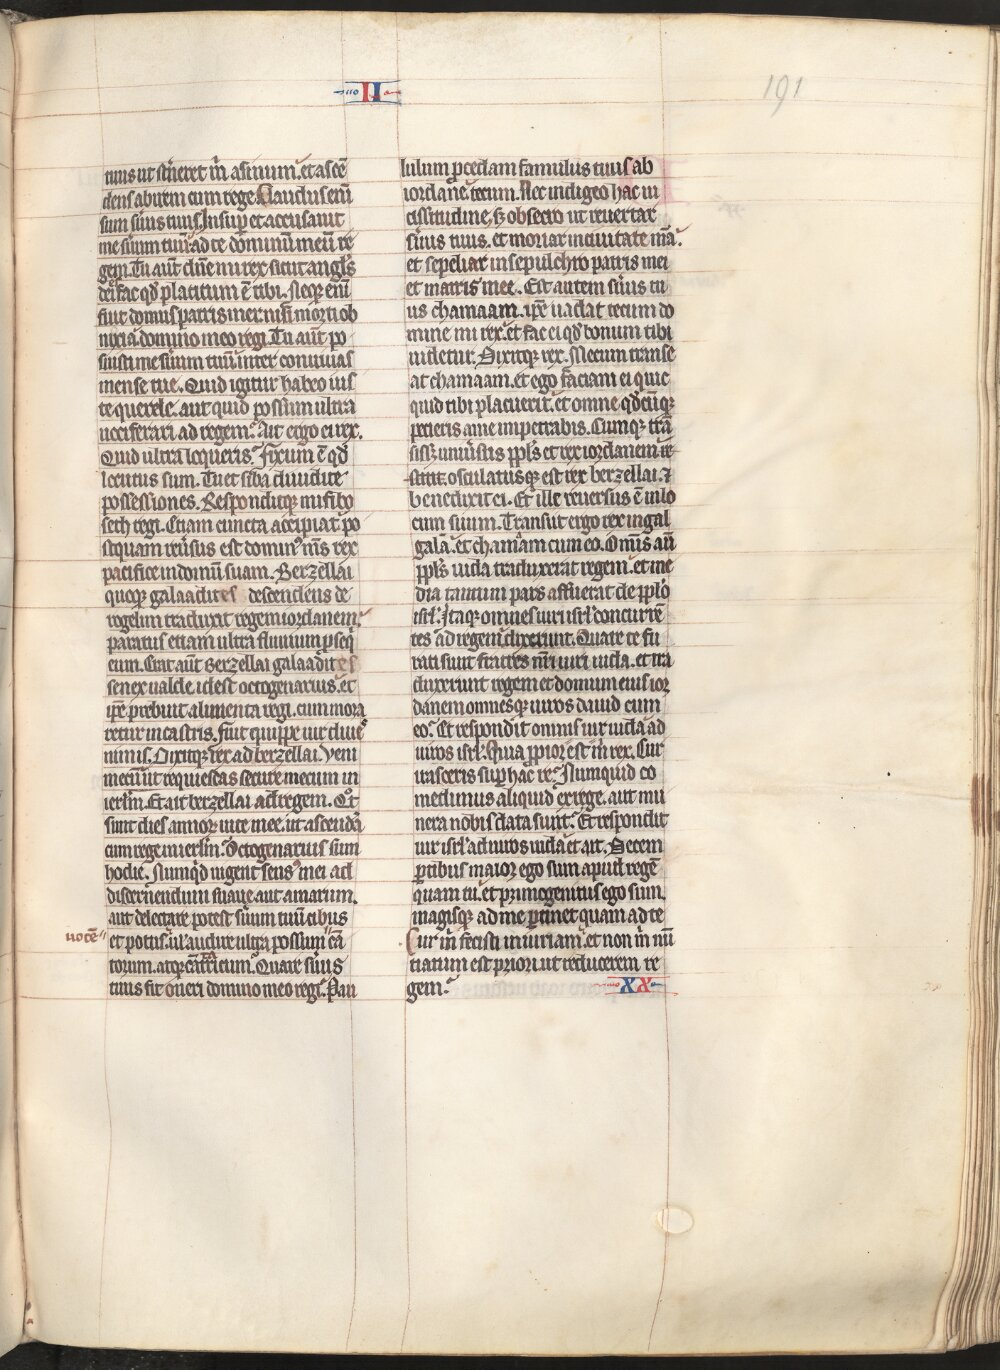 II
191
tuus ut st̾neret m̄ asinum. et ascē
dens abirem cum rege. Claudus enī
sum s̾uus tuus. Insup̱ et accusauit
me s̾uum tuū ad te dominū meū re
gem. Tu aut̄ dn̄e mi rex sicut angl̄s
dei. fac qd̾ placitum ē tibi. Neq; enī
fuit domus patris mei nisi morti ob
noxia. domino meo regi. Tu aut̄ po
suisti me s̾uum tuū inter conuiuas
mense tue. Quid igitur habeo ius
te querele. aut quid possum ultra
uociferari ad regem? Ait ergo ei rex.
Quid ultra loqueris? Fixum ē qd̾
locutus sum. Tu et siba diuidite
possessiones. Responditq; misibo
seth regi. Etiam cuncta accipiat po
stquam reu̾sus est domin᷒ m̄s rex
pacifice in domū suam. Berzellai
quoq; galaadites descendens de
rogelim traduxit regem iordanem
paratus etiam ultra fluuium p̱seq̾
eum. Erat aut̄ Berzellai galaadites
senex ualde. id est octogenarius. et
ip̄e prebuit alimenta regi. cum mora
retur in castris. fuit quippe uir diues
nimis. Dixitq; rex ad berzellai. Veni
mecū ut requiescas secure mecum in
ierl̄m. Et ait berzellai ad regem. Qot
sunt dies annoꝝ uite mee. ut ascendā
cum rege in ierl̄m? Octogenarius sum
hodie. Numq̾d uigent sens᷒ mei ad
discernendum suaue aut amarum.
aut delectare potest s̾uum tuū cibus
et potus. ul̄ audire ultra possum cā
uocē
torum. atq; cātricum. Quare s̾uus
tuus sit oneri domino meo regi? Pau
lulum p̱cedam famulus tuus ab
iordane tecum. Nec indigeo hac ui
cissitudine. sꝫ obsecro ut reuertar
s̾uus tuus. et moriar in ciuitate mea.
et sepeliar in sepulchro patris mei
et matris mee. Est autem s̾uus tu
us chamaam. ip̄e uadat tecum do
mine mi rex. et fac ei qd̾ bonum tibi
uidetur. Dixitq; rex. Mecum transe
at chamaam. et ego faciam ei quic
quid tibi placuerit. et omne qd̾cūq;
petieris a me impetrabis. Cumq; trā
sissꝫ uniu̾sus ppl̄s et rex iordanem re
stitit. osculatusq; est rex berzellai. ⁊
benedixit ei. Et ille reuersus ē in lo
cum suum. Transiit ergo rex in gal
gala. et chamaam cum eo. Omīs aū
ppl̄s iuda traduxerat regem. et me
dia tantum pars affuerat de ppl̄o
isrl̄. Itaq; omnes uiri isrl̄ concurrē
tes ad regem dixerunt. Quare te fu
rati sunt fratres nr̄i uiri iuda. et tra
duxerunt regem et domum eius ior
danem omnesq; uiros dauid cum
eo? Et respondit omnis uir iuda ad
uiros isrl̄. Quia ppior est m̄ rex. Cur
irasceris sup̱ hac re? Numquid co
medimus aliquid ex rege. aut mu
nera nobis data sunt? Et respondit
uir isrl̄ ad uiros iuda et ait. Decem
p̱tibus maior ego sum apud regē
quam tu. et p̾mogenitus ego sum.
magisq; ad me p̱tinet quam ad te
Cur m̄ fecisti iniuriam. et non m̄ nū
tiatum est priori. ut reducerem re
gem?
XX